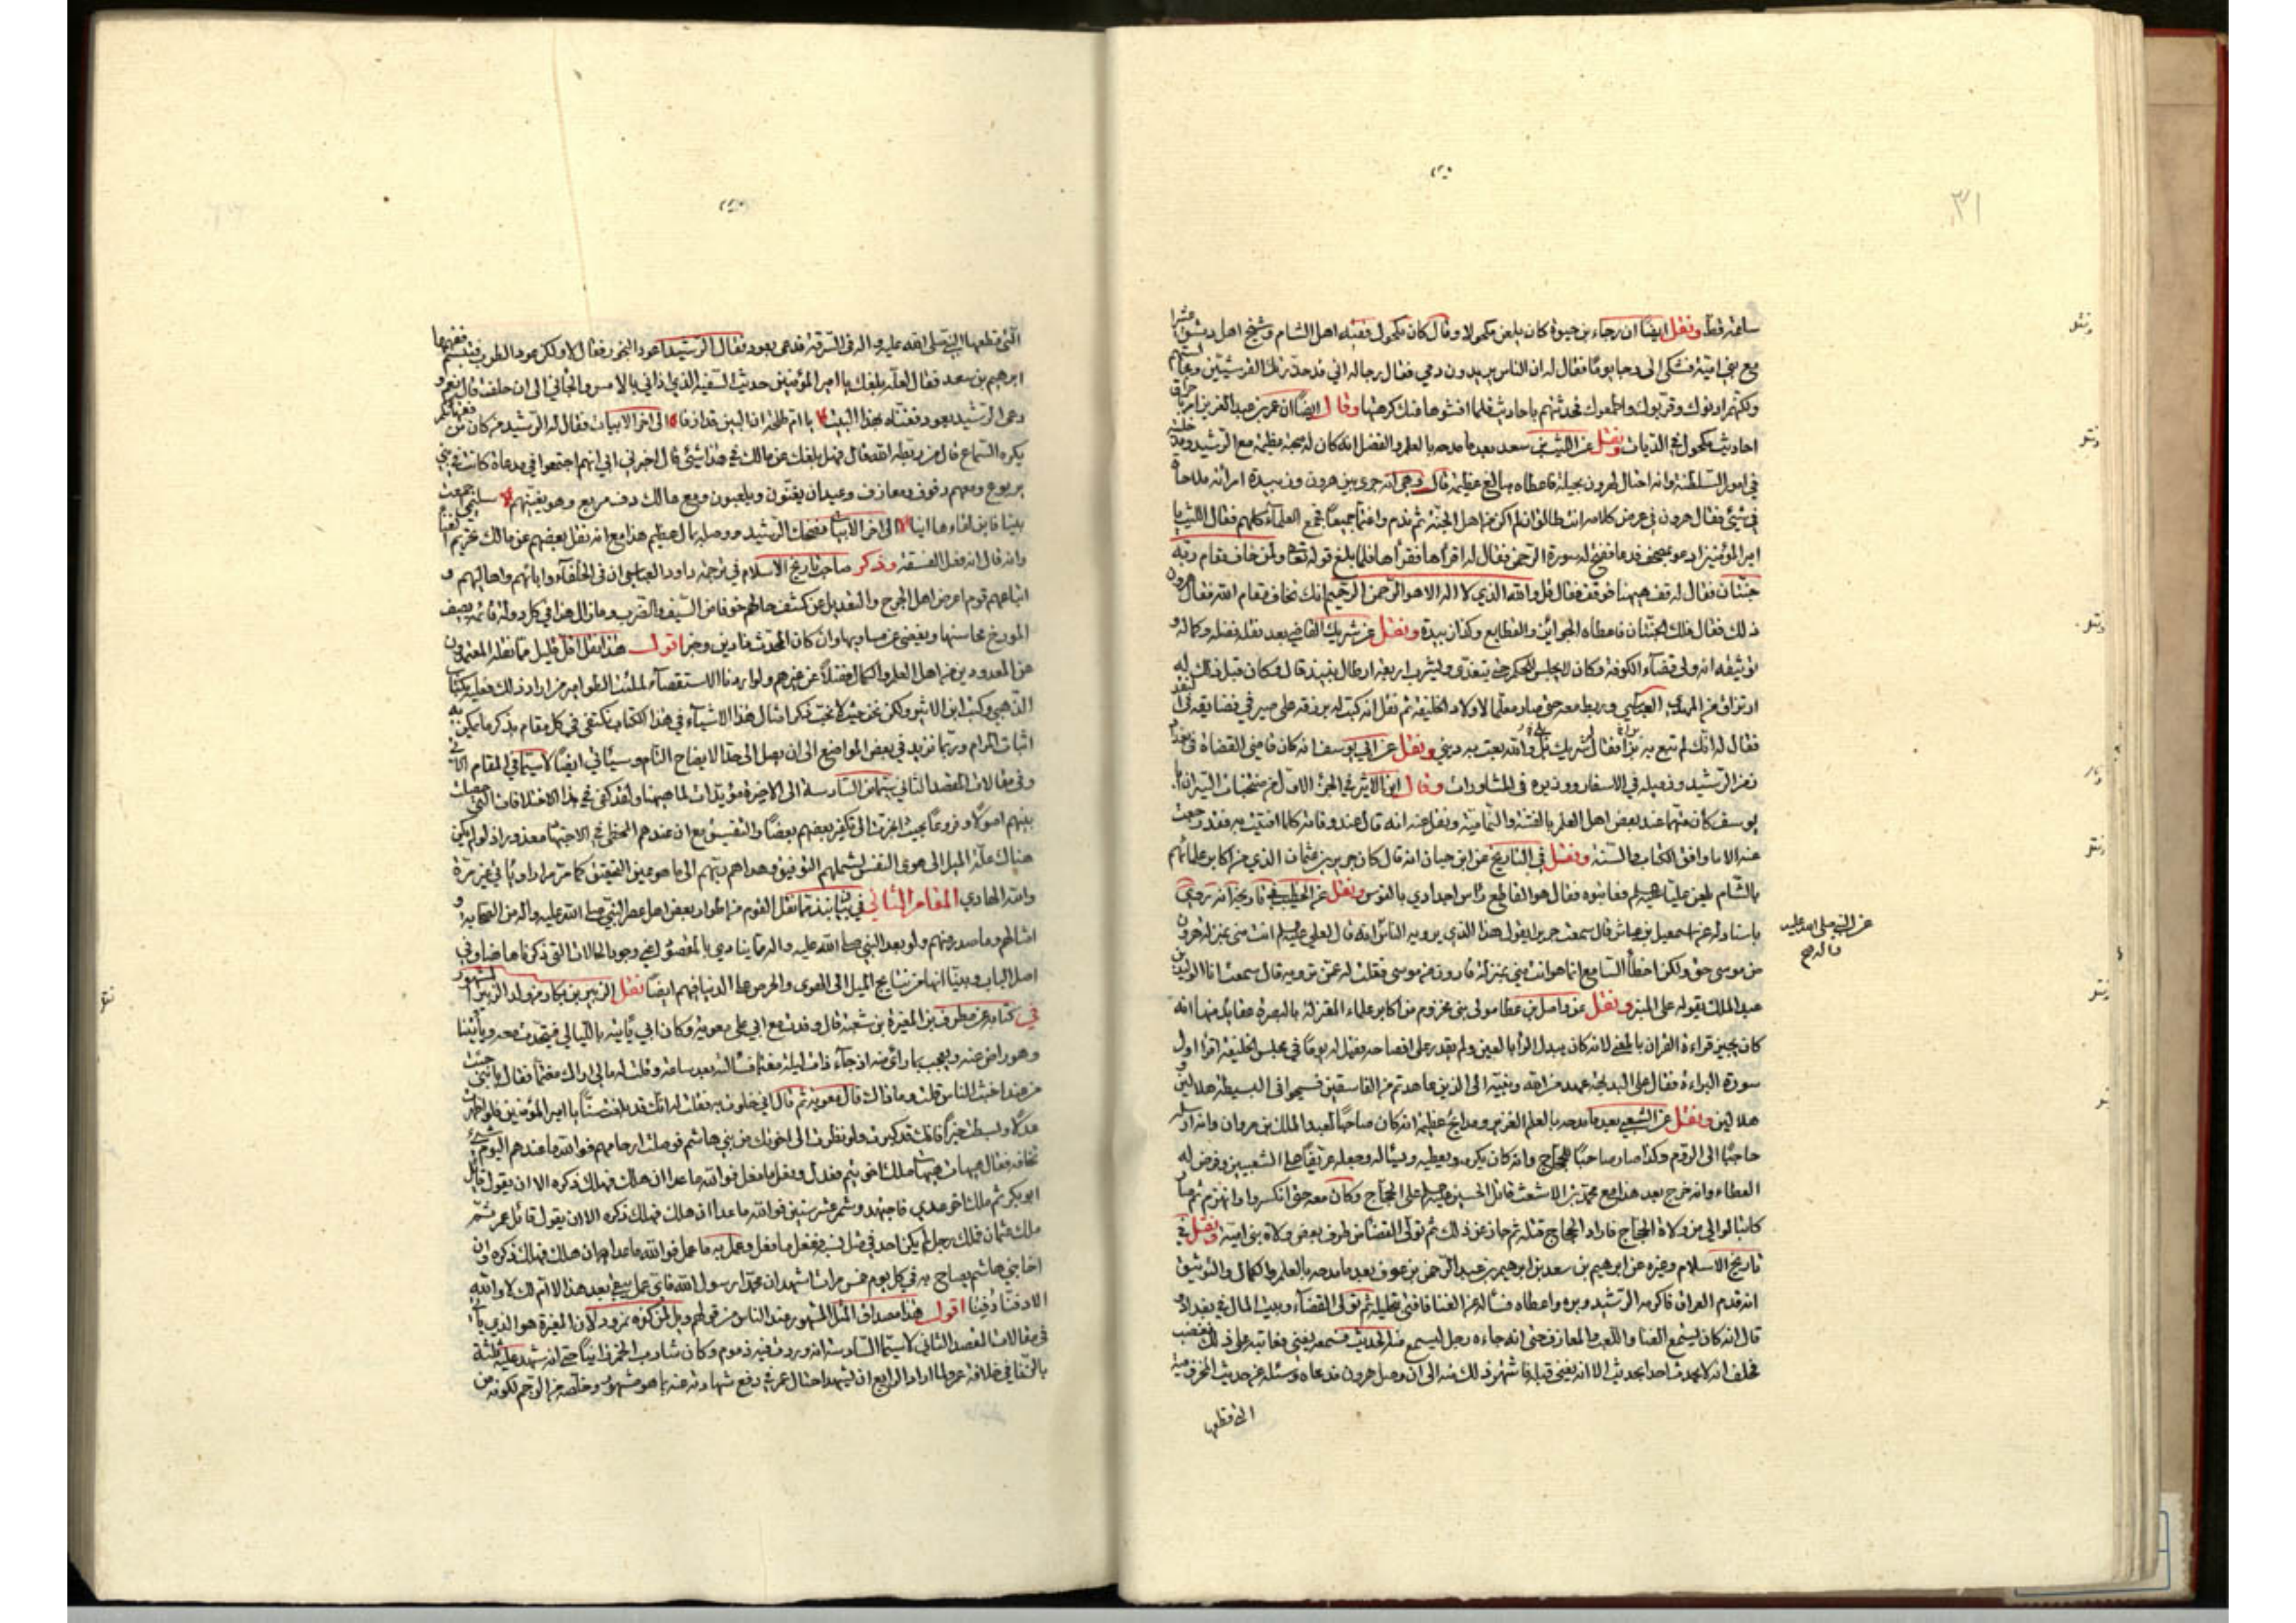 ٣١
ساعة قط ونقل ايضًا ان رجاء بن حيوة كان يلعن مكحولا وقال كان مكحول فقيه اهل الشام وشيخ اهل دمشق
مع بني امية فشكى الى رجا يومًا فقال له ان الناس يريدون دمي فقال رجا له اني قد حذرتك القرشيين
ولكنهم ادنوك وقربوك واطمعوك فحدثتهم باحاديث فلما افشوها عنك كرهتها وقال ايضًا ان عمر بن عبد العزيز امر
احاديث مكحول في الديات ونقل عن الليث بن سعد بعد ما مدحه بالعلم والفضل انه كان له صحبة عظيمة مع الرشيد
في امور السلطنة وانه احتال لهرون بحيلة فاعطاه مبالغ عظيمة قال وهي انه جرى بين هرون وزبيدة امرأته ملاحاة
في شيء فقال هرون في عرض كلامه انت طالق ان لم اكن من اهل الجنة ثم ندم واغتما جميعًا فجمع العلماء كلهم فقال الليث يا
امير المؤمنين ادعو بمصحف فدعا ففتح له سورة الرحمن فقال له اقرأها فقرأها فلما بلغ قوله تعالى ولمن خاف مقام ربه
جنتان فقال له قف ههنا فوقف فقال قل والله الذي لا اله الا هو الرحمن الرحيم انك تخاف مقام الله فقال هرون
ذلك فقال فلك الجنتان فاعطاه الجوائز والقطايع وكذا زبيدة ونقل عن شريك القاضي بعد نقل فضله وكماله و
توثيقه انه ولى قضاء الكوفة وكان لا يجلس للحكم حتى يتغدى ويشرب اربعة ارطال نبيذ قال وكان قبل ذلك له
ارتزاق من المهدي العباسي وربط معه حتى صار معلما لاولاد الخليفة ثم نقل انه كتب له برزقه على صيرفي فضايقه في النقد
فقال له انك لم تبع به بزًا فقال شريك بلى والله بعت به ديني ونقل عن ابي يوسف انه كان قاضي القضاة في بغداد
زمن الرشيد وزميله في الاسفار ووزيره في المشاورات وقال ابن الاثير في الجزء الاول من منتخبات
يوسف كان متهما عند بعض اهل العلم بالفتنة والنمامية ونقل عنه انه قال عند وفاته كلما افتيت به فقد رجعت
عنه الا ما وافق الكتاب والسنة ونقل في التاريخ عن ابن حبان انه قال كان حريز بن عثمان الذي من اكابر علمائهم
بالشام يلعن عليا فعاتبوه فقال هو القاطع رؤس اجدادي بالفؤس ونقل عن الخطيب في تاريخه انه روى
باسناده عن اسمعيل بن عياش قال سمعت حريزا يقول هذا الذي يرويه الناس انه قال لعلي انت مني بمنزلة هرون
عن النبي صلى الله عليه
واله
من موسى حق ولكن اخطأ السامع انما هو انت مني بمنزلة قارون من موسى فقلت له عمن ترويه قال سمعت الوليد بن
عبد الملك يقوله على المنبر ونقل عن واصل بن عطا مولى بني مخزوم من اكابر علماء المعتزلة بالبصرة عقايد منها انه
كان يجيز قراءة القران بالمعنى لانه كان يبدل الراء بالغين ولم يقدر على افصاحه فقيل له يومًا في مجلس الخليفة اقرأ اول
سورة البراءة فقال على البديهة عهد من الله ونبيه الى الذين عاهدتم من الفاسقين فسيحوا في البسيطة هلالين و
هلالين ونقل عن الشعبي بعد ما مدحه بالعلم الغزير ومدايح عظيمة انه كان صاحبًا لعبد الملك بن مروان وانه ارسله
حاجبًا الى الروم وكذا صار صاحبًا للحجاج وانه كان يكرمه ويعطيه ويسئاله وجعله عريفًا على الشعبيين وفرض له
العطاء وانه خرج بعد هذا مع محمد بن الاشعث قاتل الحسين على الحجاج وكان معه حتى انكسروا وانهزم ثم صار
كاتبا لوالي من ولاة الحجاج فاراد الحجاج قتله ثم جاز عن ذلك ثم تولى القضا من طرف بعض ولاة بني امية ونقل في
تاريخ الاسلام وغيره عن ابرهيم بن سعد بن ابرهيم بن عبد الرحمن بن عوف بعد ما مدحه بالعلم والكمال والتوثيق
انه قدم العراق فاكرمه الرشيد وبره واعطاه فسأله عن الغنا فافتى بتحليله ثم تولى القضاء وبيت المال في بغداد
قال انه كان يسمع الغنا واللعب والمعازف حتى انه جاءه رجل ليسمع منه الحديث فسمعه يغني فعاتبه على ذلك فغضب
فحلف انه لا يحدث احدا بحديث الا انه يغنى قبله فاشتهر ذلك منه الى ان وصل هرون فدعاه وسئله عن حديث المخزومية
التي قطعها
التي قطعها النبي صلى الله عليه واله في السرقة فدعى بعود فقال الرشيد اعود البخور فقال لا ولكن عود الطرب فتبسم ففهمها
ابرهيم بن سعد فقال لعله بلغك يا امير المؤمنين حديث السفيه الذي اذاني بالامس والجأني الى ان حلفت قال نعم و
دعى الرشيد بعود فغناه بهذا البيت يا ام طلحة ان البين قد افدا الى اخر الابيات فقال له الرشيد من كان من فقهائكم
يكره السماع قال من ربطه الله قال فهل بلغك عن مالك في هذا شيئ قال اخبرني ابي انهم اجتمعوا في مدعاة كانت في بني
يربوع ومعهم دفوف ومعازف وعيدان يغنون ويلعبون ومع مالك دف مربع وهو يغنيهم سليمى اجمعت
بينا فاين لقاءها اينا الى اخر الابيات فضحك الرشيد ووصله بمال عظيم هذا مع انه نقل بعضهم عن مالك تحريم الغنا
وانه قال انه فعل الفسقة وذكر صاحب تاريخ الاسلام في ترجمة داود العباسي ان في الخلفاء وابائهم واهاليهم و
اتباعهم قوم اعرض اهل الجرح والتعديل عن كشف حالهم خوفا من السيف والضرب وما زال هذا في كل دولة قائمة يصف
المورخ محاسنها ويغضي عن مساويها وان كان المحدث ذا دين وخير اقول هذا نقل اقل قليل مما نقله المعتمدون
عن المعدودين من اهل العلم والكمال فضلًا عن غيرهم ولو اردنا الاستقصاء لملئت الطوامير من اراد ذلك فعليه بكتاب
الذهبي وكتب ابن الاثير ولكن نحن حيث لا نحب ذكر امثال هذا الاشياء في هذا الكتاب نكتفي في كل مقام بذكر ما يمكن به
اثبات المرام وربما نزيد في بعض المواضع الى ان يصل الى حد الايضاح التام وسيأتي ايضًا لا سيما في المقام الاتي
وفي مقالات المقصد الثاني سيما من السادسة الى الاخيرة مؤيدات لما ههنا ولقد كفى في هذا الاختلافات التي حصلت
بينهم اصولًا وفروعًا بحيث انجرت الى تكفير بعضهم بعضًا والتفسيق مع ان عندهم المخطئ في الاجتهاد معذور اذ لو لم يكن
هناك علة الميل الى هوى النفس لشملهم التوفيق وهداهم ربهم الى ما هو عين التحقيق كما مر مرارا وياتي غير مرة
والله الهادي المقام الثاني في بيان نبذ مما نقل القوم من اطوار بعض اهل عصر النبي صلى الله عليه واله من الصحابة و
امثالهم وما صدر عنهم ولو بعد النبي صلى الله عليه واله مما ينادي بالمقصود اعني وجود الحالات التي ذكرناها ضاوفي
اصل الباب وبينا انها من نتايج الميل الى الهوى والحرص على الدنيا فيهم ايضًا نقل الزبير بن بكار من ولد الزبير المشهور
في كتابه عن مطرف بن المغيرة بن شعبة قال وفدت مع ابي على معوية وكان ابي ياتيه بالليالي فيتحدث معه ويأتينا
وهو راض عنه ويعجب بارائه اذ جاء ذات ليلة مغتما فسألته بعد ساعة وقلت له مالي اراك مغتما فقال يا بني جئت
من عند اخبث الناس قلت وما ذاك قال معوية ثم قال اني خلوت به فقلت له انك قد بلغت سنا يا امير المؤمنين فلو اظهرت
عدلًا وبسطت خيرًا فانك قد كبرت ولو نظرت الى اخوتك من بني هاشم فوصلت ارحامهم فوالله ما عندهم اليوم شيء
تخافه فقال هيهات هيهات ملك اخو تيم فعدل وفعل ما فعل فوالله ما عدا ان هلك فهلك ذكره الا ان يقول قائل
ابو بكر ثم ملك اخو عدي فاجتهد وشمر عشر سنين فوالله ما عدا ان هلك فهلك ذكره الا ان يقول قائل عمر ثم
ملك عثمان فملك رجل لم يكن احد في مثل نسبه ففعل ما فعل وعمل به ما عمل فوالله ما عدا ان هلك فهلك ذكره وان
اخا بني هاشم يصاح به في كل يوم خمس مرات اشهد ان محمدا رسول الله فاي عمل يبقى بعد هذا لا ام لك لا والله
الا دفنًا دفنًا اقول هذا مصداق المثل المشهور عند الناس من قولهم ويل لمن كفره نمرود لان المغيرة هو الذي يأتي
في مقالات المقصد الثاني لا سيما السادسة انه ورد فيه ذموم وكان شارب الخمر زانيًا حتى انه شهد عليه ثلثة
بالزنا في خلافة عمر ولما اراد الرابع ان يشهد احتال عمر في دفع شهادته عنه بما هو مشهور وخلصه من الرجم لكونه من